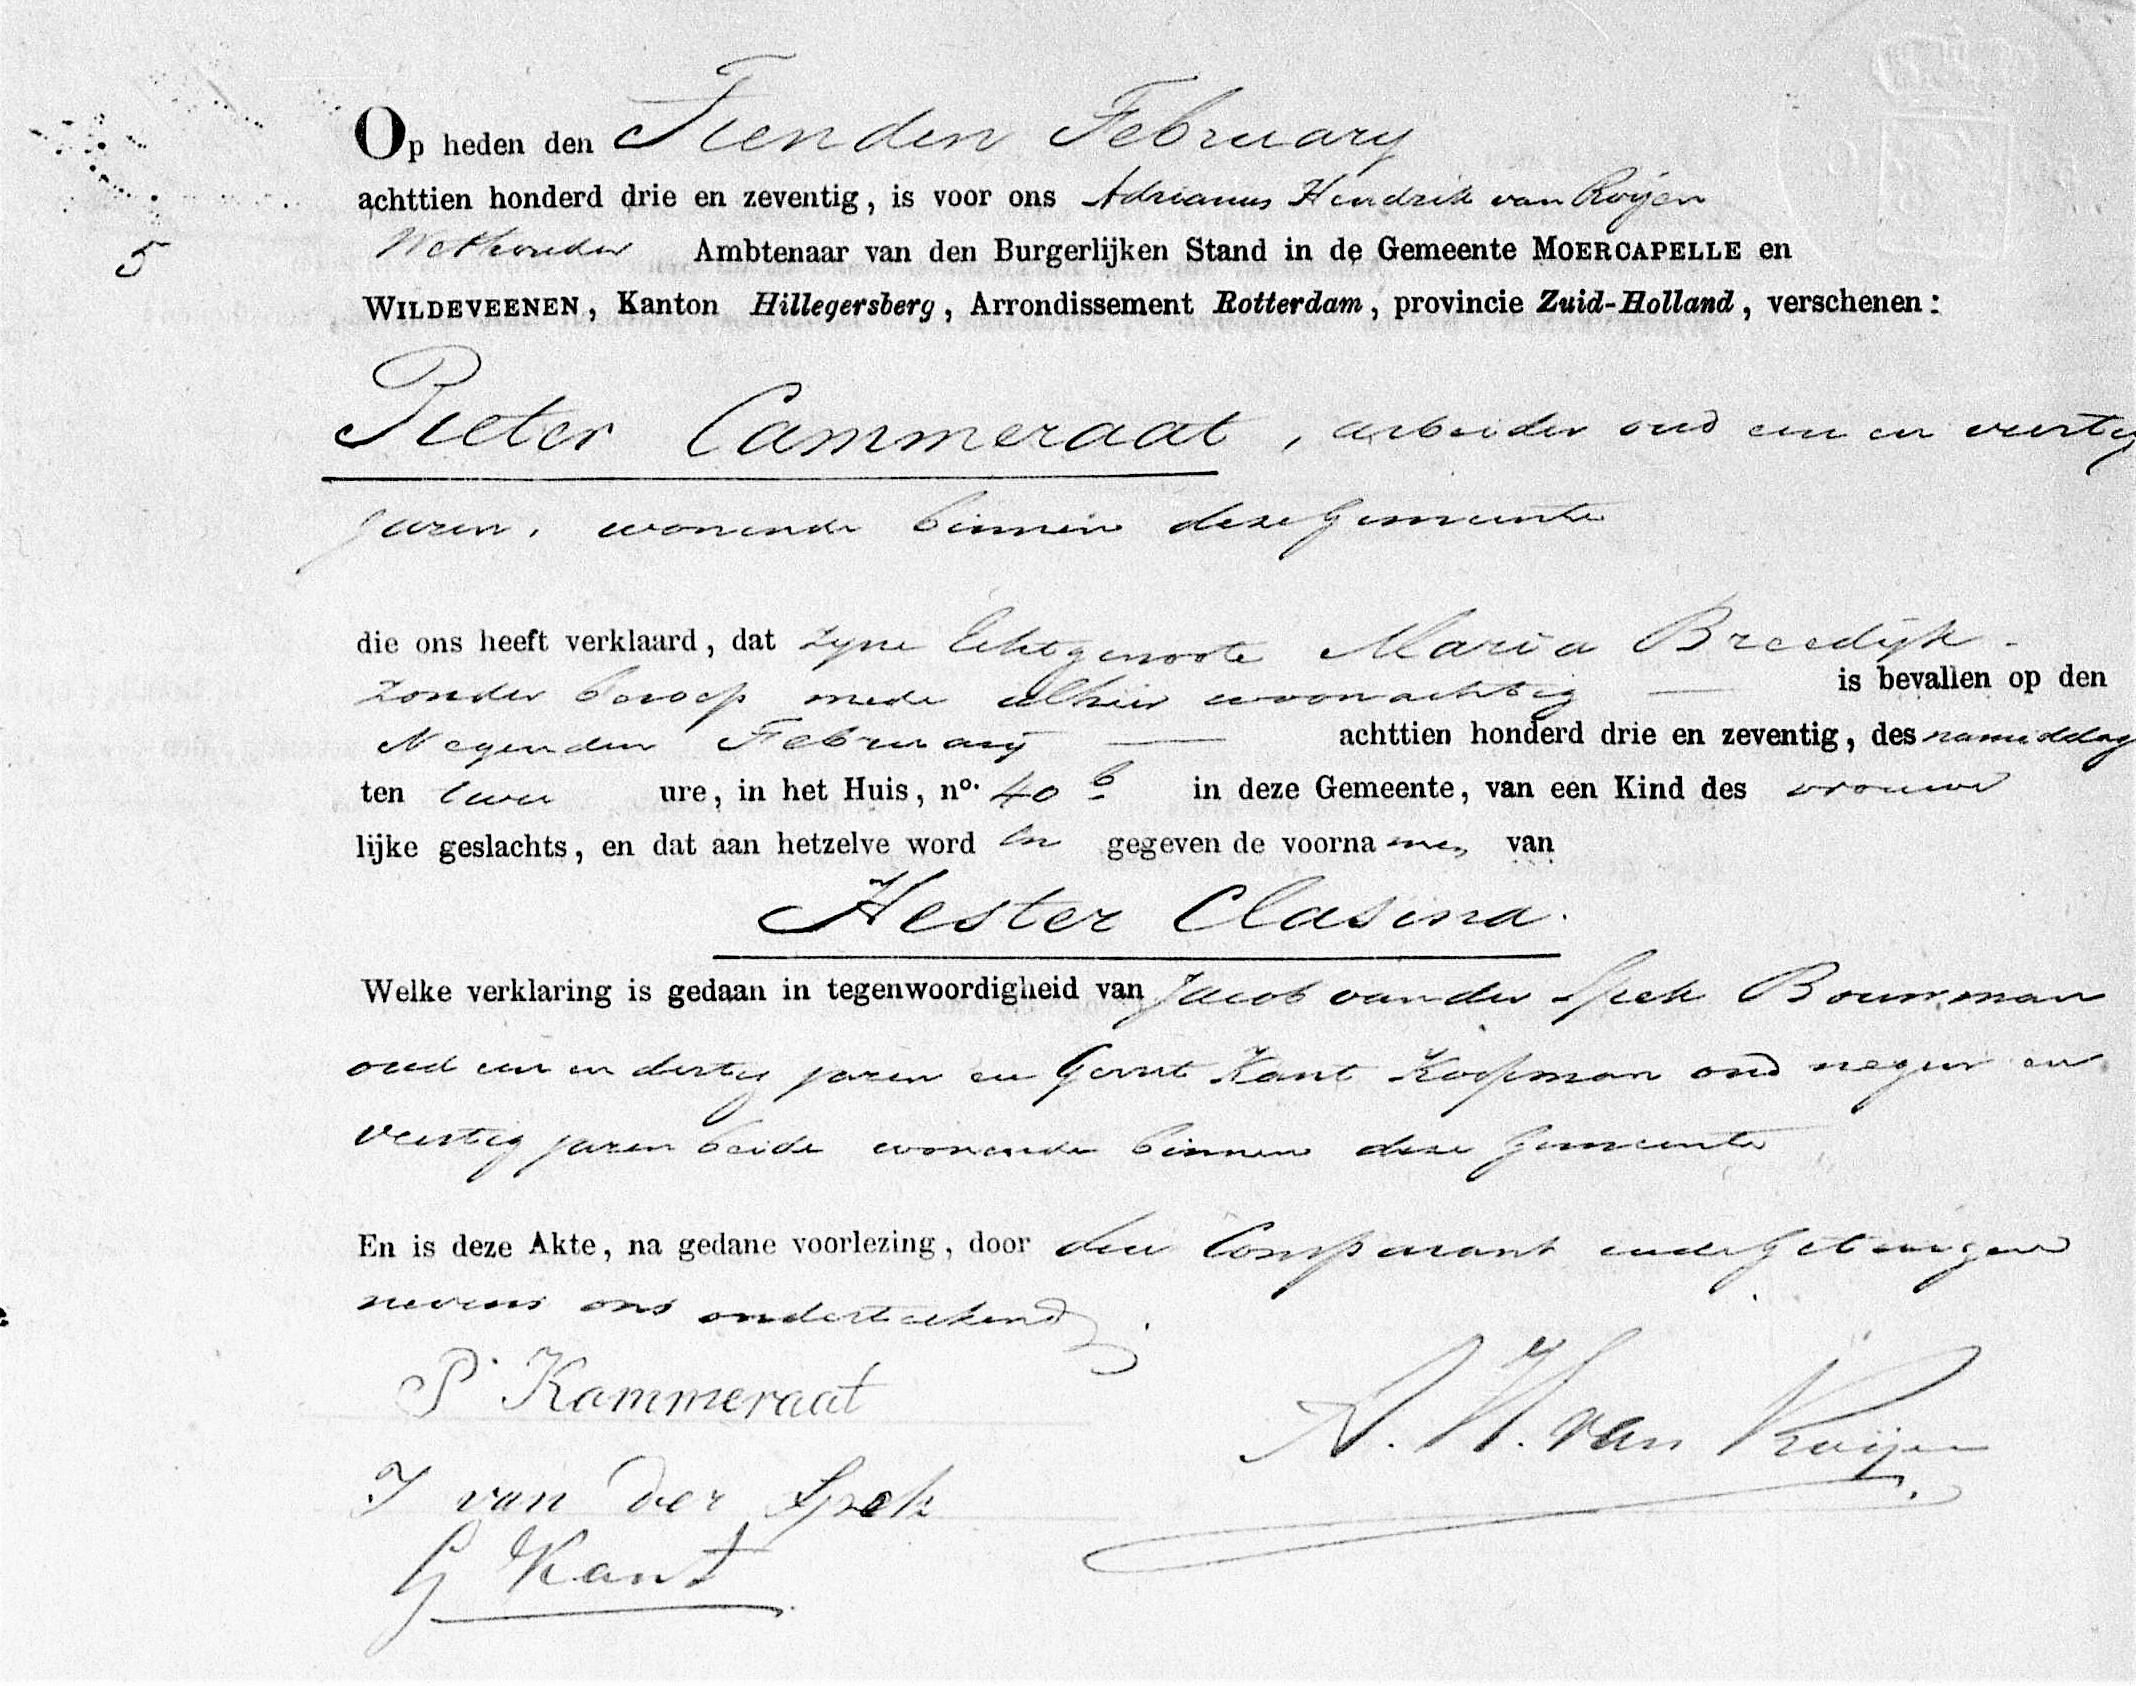 Op heden den Tienden February
achttien honderd drie en zeventig, is voor ons Adrianus Hendrik van Roijen
5 Wethouder Ambtenaar van den Burgerlijken Stand in de Gemeente MOERCAPELLE en
WILDEVEENEN, Kanton Hillegersberg, Arrondissement Rotterdam, provincie Zuid-Holland, verschenen:
Pieter Cammeraat, arbeider oud een en veertig
jaren, wonende binnen deze Gemeente
die ons heeft verklaard, dat zyne Echtgenoote Maria Breedijk
zonder beroep mede alhier woonachtig — is bevallen op den
Negenden February — achttien honderd drie en zeventig, des namiddag
ten twee ure, in het Huis, no. 40 b in deze Gemeente, van een Kind des vrouwe
lijke geslachts, en dat aan hetzelve word en gegeven de voorna men van
Hester Clasina.
Welke verklaring is gedaan in tegenwoordigheid van Jacob van der Spek Bouwman
oud een en dertig jaren en Gerrit Kant Koopman oud negen en
veertig jaren beide wonende binnen deze Gemeente
En is deze Akte, na gedane voorlezing, door den Comparant en de Getuigen
nevens ons onderteekend.
P Kammeraat
A. H. van Roijen
J van der Spek
G Kant